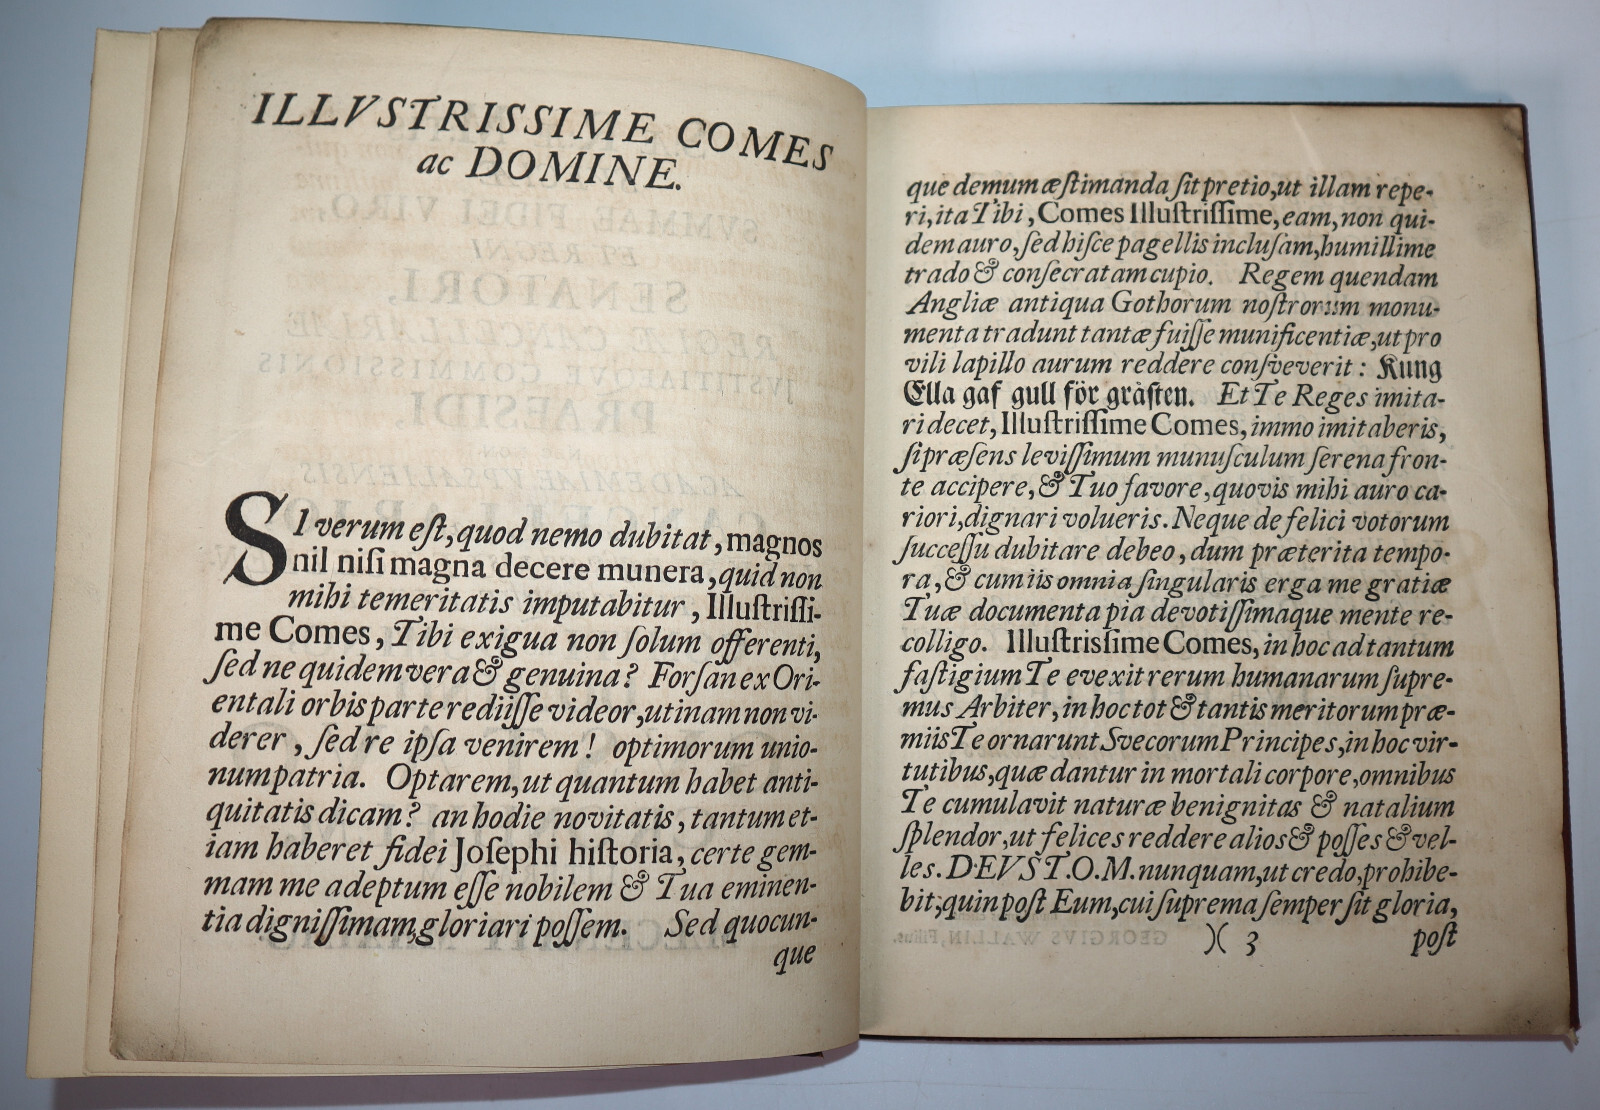 ILLVSTRISSIME COMES
ac DOMINE.
SI verum eſt, quod nemo dubitat, magnos
nil niſi magna decere munera, quid non
mihi temeritatis imputabitur, Illuſtriſſi-
me Comes, Tibi exigua non ſolum offerenti,
ſed ne quidem vera & genuina? Forſan ex Ori-
entali orbis parte rediiſſe videor, utinam non vi-
derer, ſed re ipſa venirem! optimorum unio-
num patria. Optarem, ut quantum habet anti-
quitatis dicam? an hodie novitatis, tantum et-
iam haberet fidei Joſephi hiſtoria, certe gem-
mam me adeptum eſſe nobilem & Tua eminen-
tia digniſſimam, gloriari poſſem. Sed quocun-
que
que demum æſtimanda ſit pretio, ut illam repe-
ri, ita Tibi, Comes Illuſtriſſime, eam, non qui-
dem auro, ſed hiſce pagellis incluſam, humillime
trado & conſecratam cupio. Regem quendam
Angliæ antiqua Gothorum noſtrorum monu-
menta tradunt tantæ fuiſſe munificentiæ, ut pro
vili lapillo aurum reddere conſveverit: Kung
Ella gaf gull för gråſten. Et Te Reges imita-
ri decet, Illuſtriſſime Comes, immo imitaberis,
ſi præſens leviſſimum munuſculum ſerena fron-
te accipere, & Tuo favore, quovis mihi auro ca-
riori, dignari volueris. Neque de felici votorum
ſucceſſu dubitare debeo, dum præterita tempo-
ra, & cum iis omnia ſingularis erga me gratiæ
Tuæ documenta pia devotiſſimaque mente re-
colligo. Illuſtrisſime Comes, in hoc ad tantum
faſtigium Te evexit rerum humanarum ſupre-
mus Arbiter, in hoc tot & tantis meritorum præ-
miis Te ornarunt Svecorum Principes, in hoc vir-
tutibus, quæ dantur in mortali corpore, omnibus
Te cumulavit naturæ benignitas & natalium
ſplendor, ut felices reddere alios & poſſes & vel-
les. DEVS T.O.M. nunquam, ut credo, prohibe-
bit; quin poſt Eum, cui ſuprema ſemper ſit gloria,
)( 3 poſt